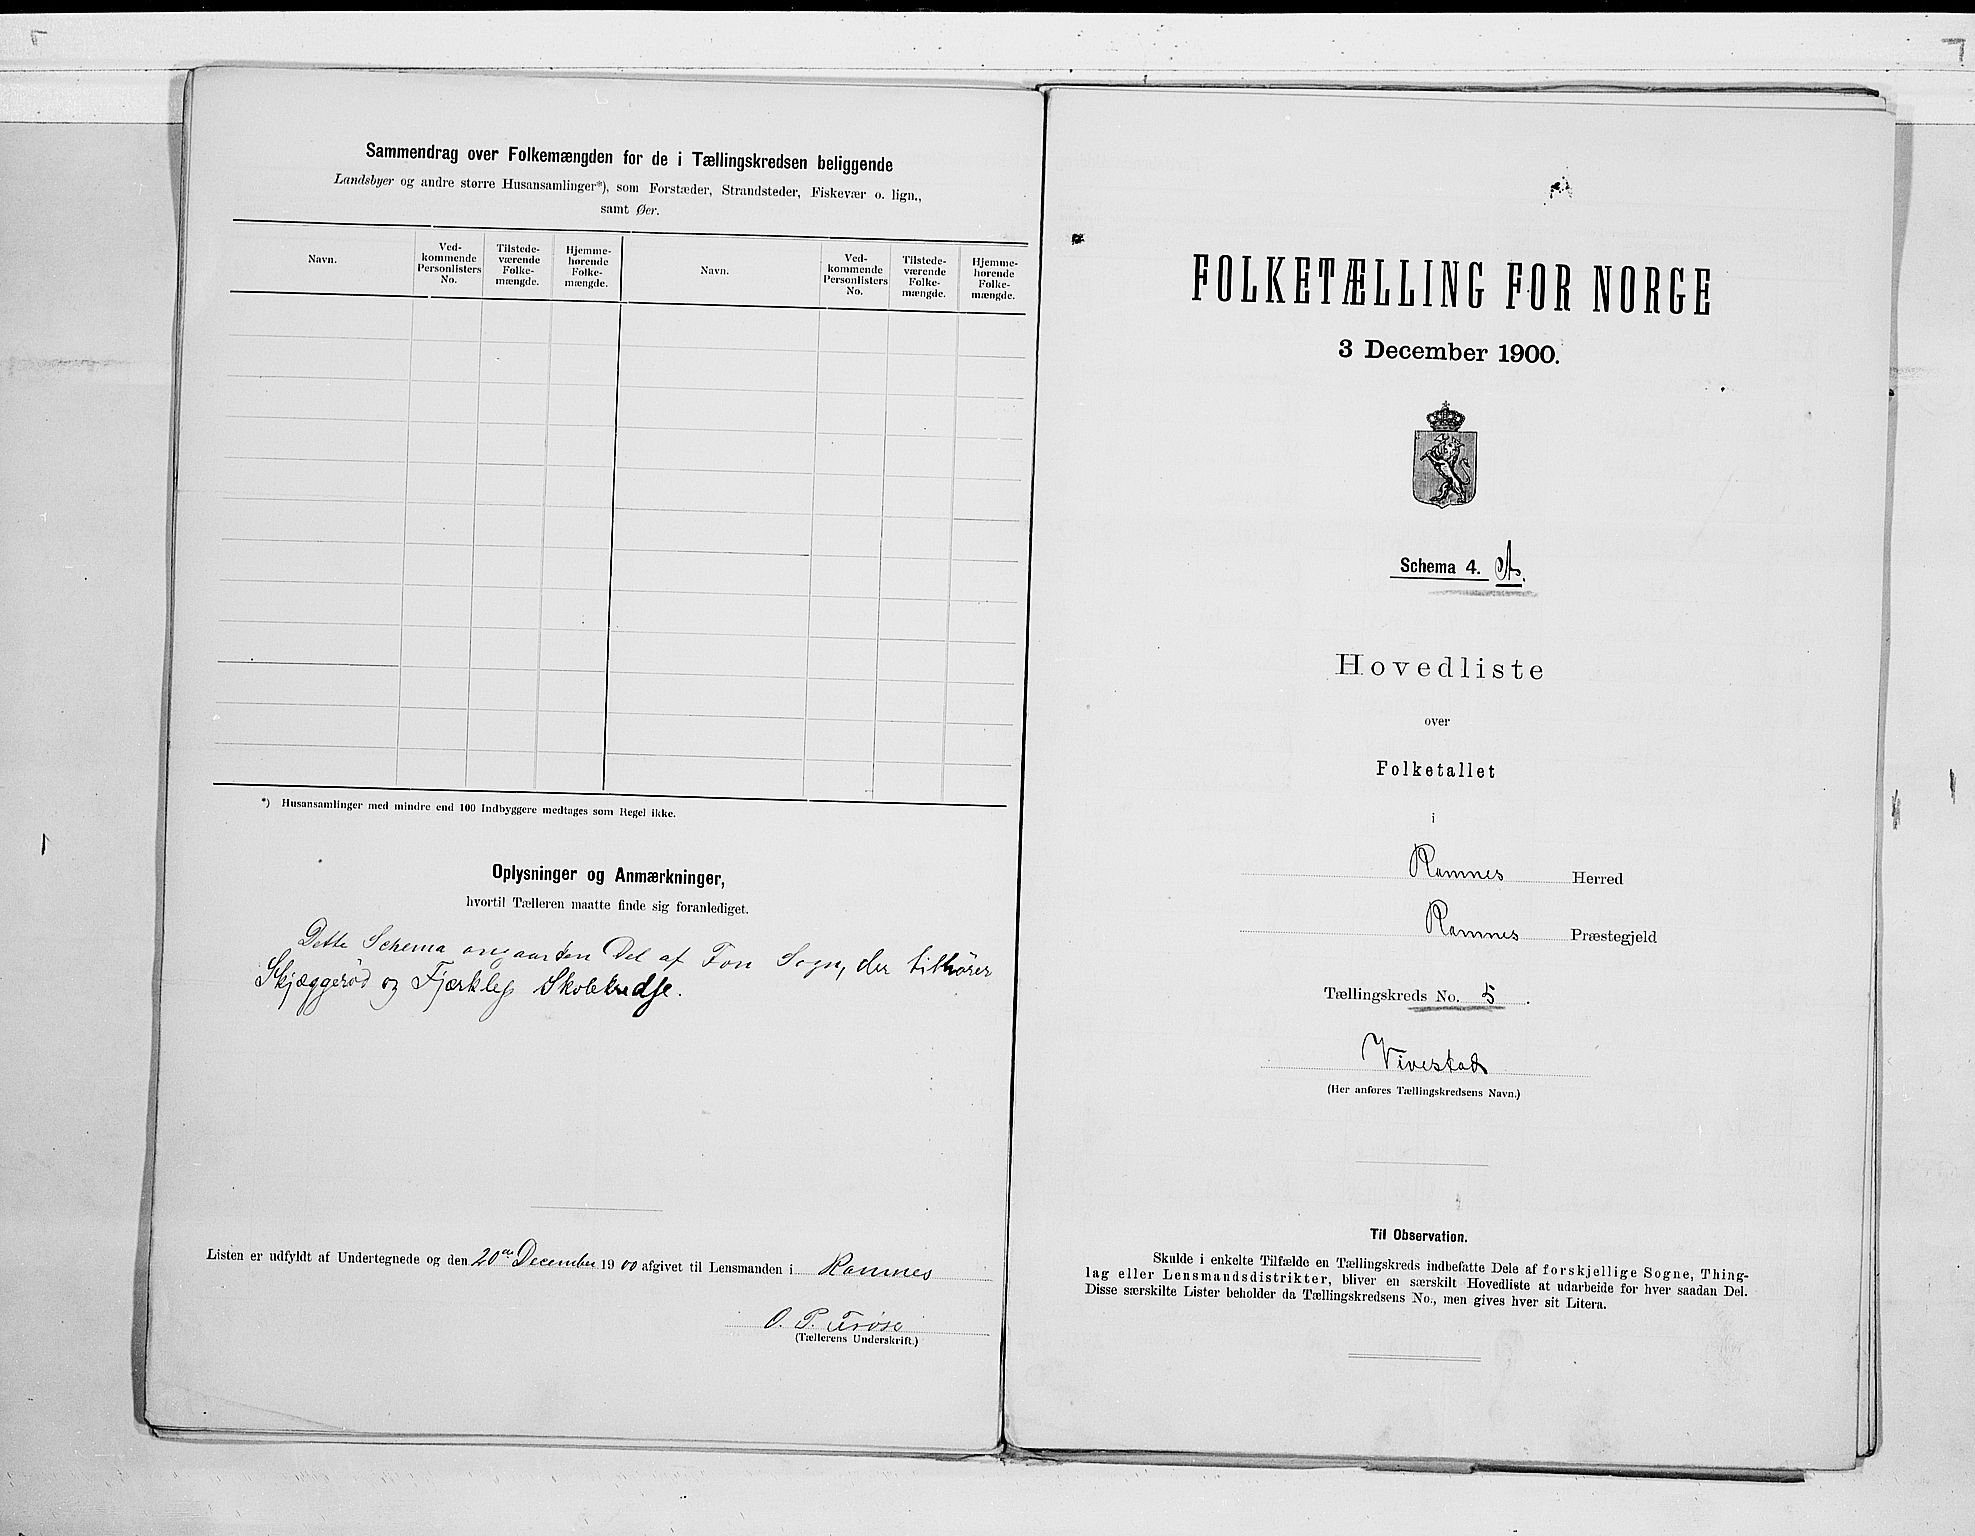 Sammendrag over Folkemængden for de i Tællingskredsen beliggende
Landsbyer og andre større Husansamlinger*), som Forstæder, Strandsteder, Fiskevær o. lign.,
samt Øer.
Navn.
Ved-
kommende
Personlisters
No.
Tilstede-
værende
Folke-
mængde.
Hjemme-
hørende
Folke-
mængde.
Navn.
Ved-
kommende
Personlisters
No.
Tilstede-
værende
Folke-
mængde.
Hjemme-
hørende
Folke-
mængde.
*) Husansamlinger med mindre end 100 Indbyggere medtages som Regel ikke.
Oplysninger og Anmærkninger,
hvortil Tælleren maatte finde sig foranlediget.
Dette Schema angaar den Del af Fon Sogn, der tilhører
Skjæggerød og Skolekredse.
Listen er udfyldt af Undertegnede og den 20de December 1900 afgivet til Lensmanden i Ramnes
O. P.
(Tællerens Underskrift.)
FOLKETÆLLING FOR NORGE
3 December 1900.
Schema 4. A.
Hovedliste
over
Folketallet
i
Ramnes Herred
Ramnes Præstegjeld
Tællingskreds No. 5.
Vivestad
(Her anføres Tællingskredsens Navn.)
Til Observation.
Skulde i enkelte Tilfælde en Tællingskreds indbefatte Dele af forskjellige Sogne, Thing-
lag eller Lensmandsdistrikter, bliver en særskilt Hovedliste at udarbeide for hver saadan Del.
Disse særskilte Lister beholder da Tællingskredsens No., men gives hver sit Litera.